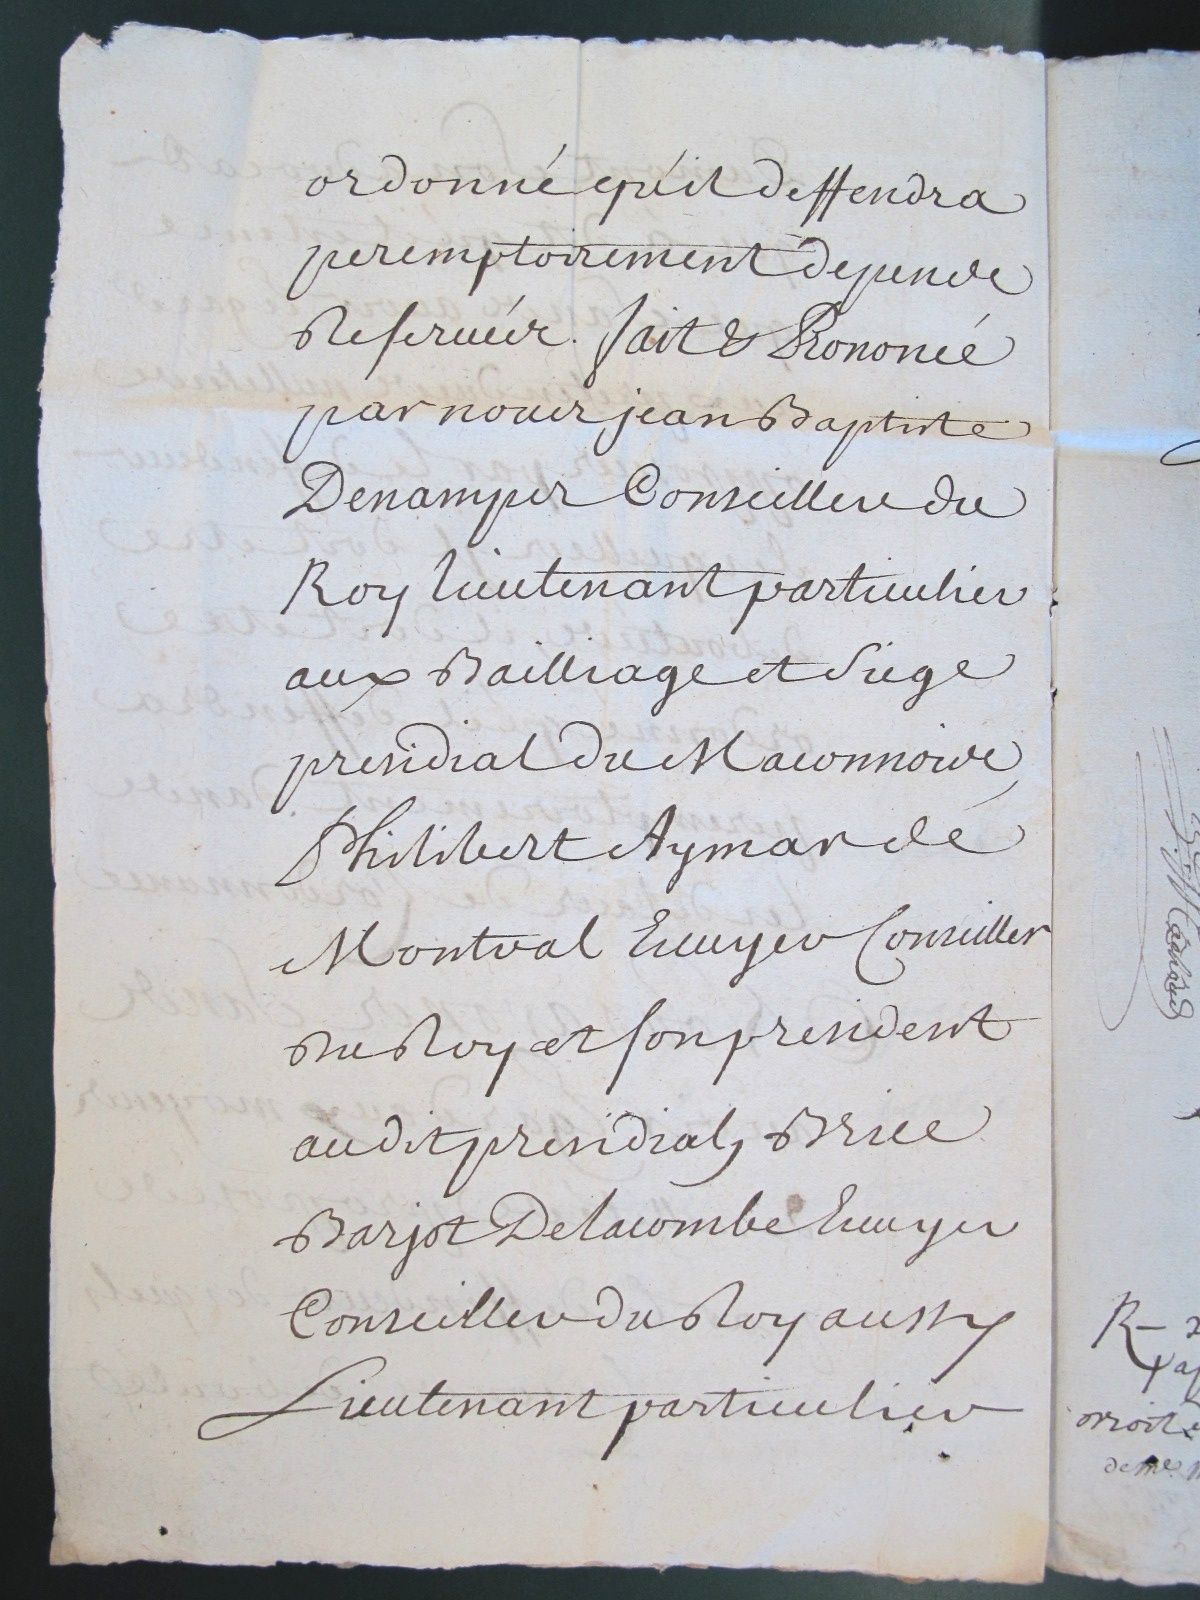 ordonné qu'il deffendra
peremptoirement depende
Reserueés. fait & Prononcé
par nouc jean Baptiste
Denamper Conseiller du
Roy lieutenant particulier
aux Bailliage et Siege
presidial du Maconnois,
Philibert Aymar dé
Montval Ecuyer Conseiller
du Roy et son president
audit presidial, Brice
Barjot Delacombe Ecuyer
Conseiller du Roy aussy
Lieutenant particulier